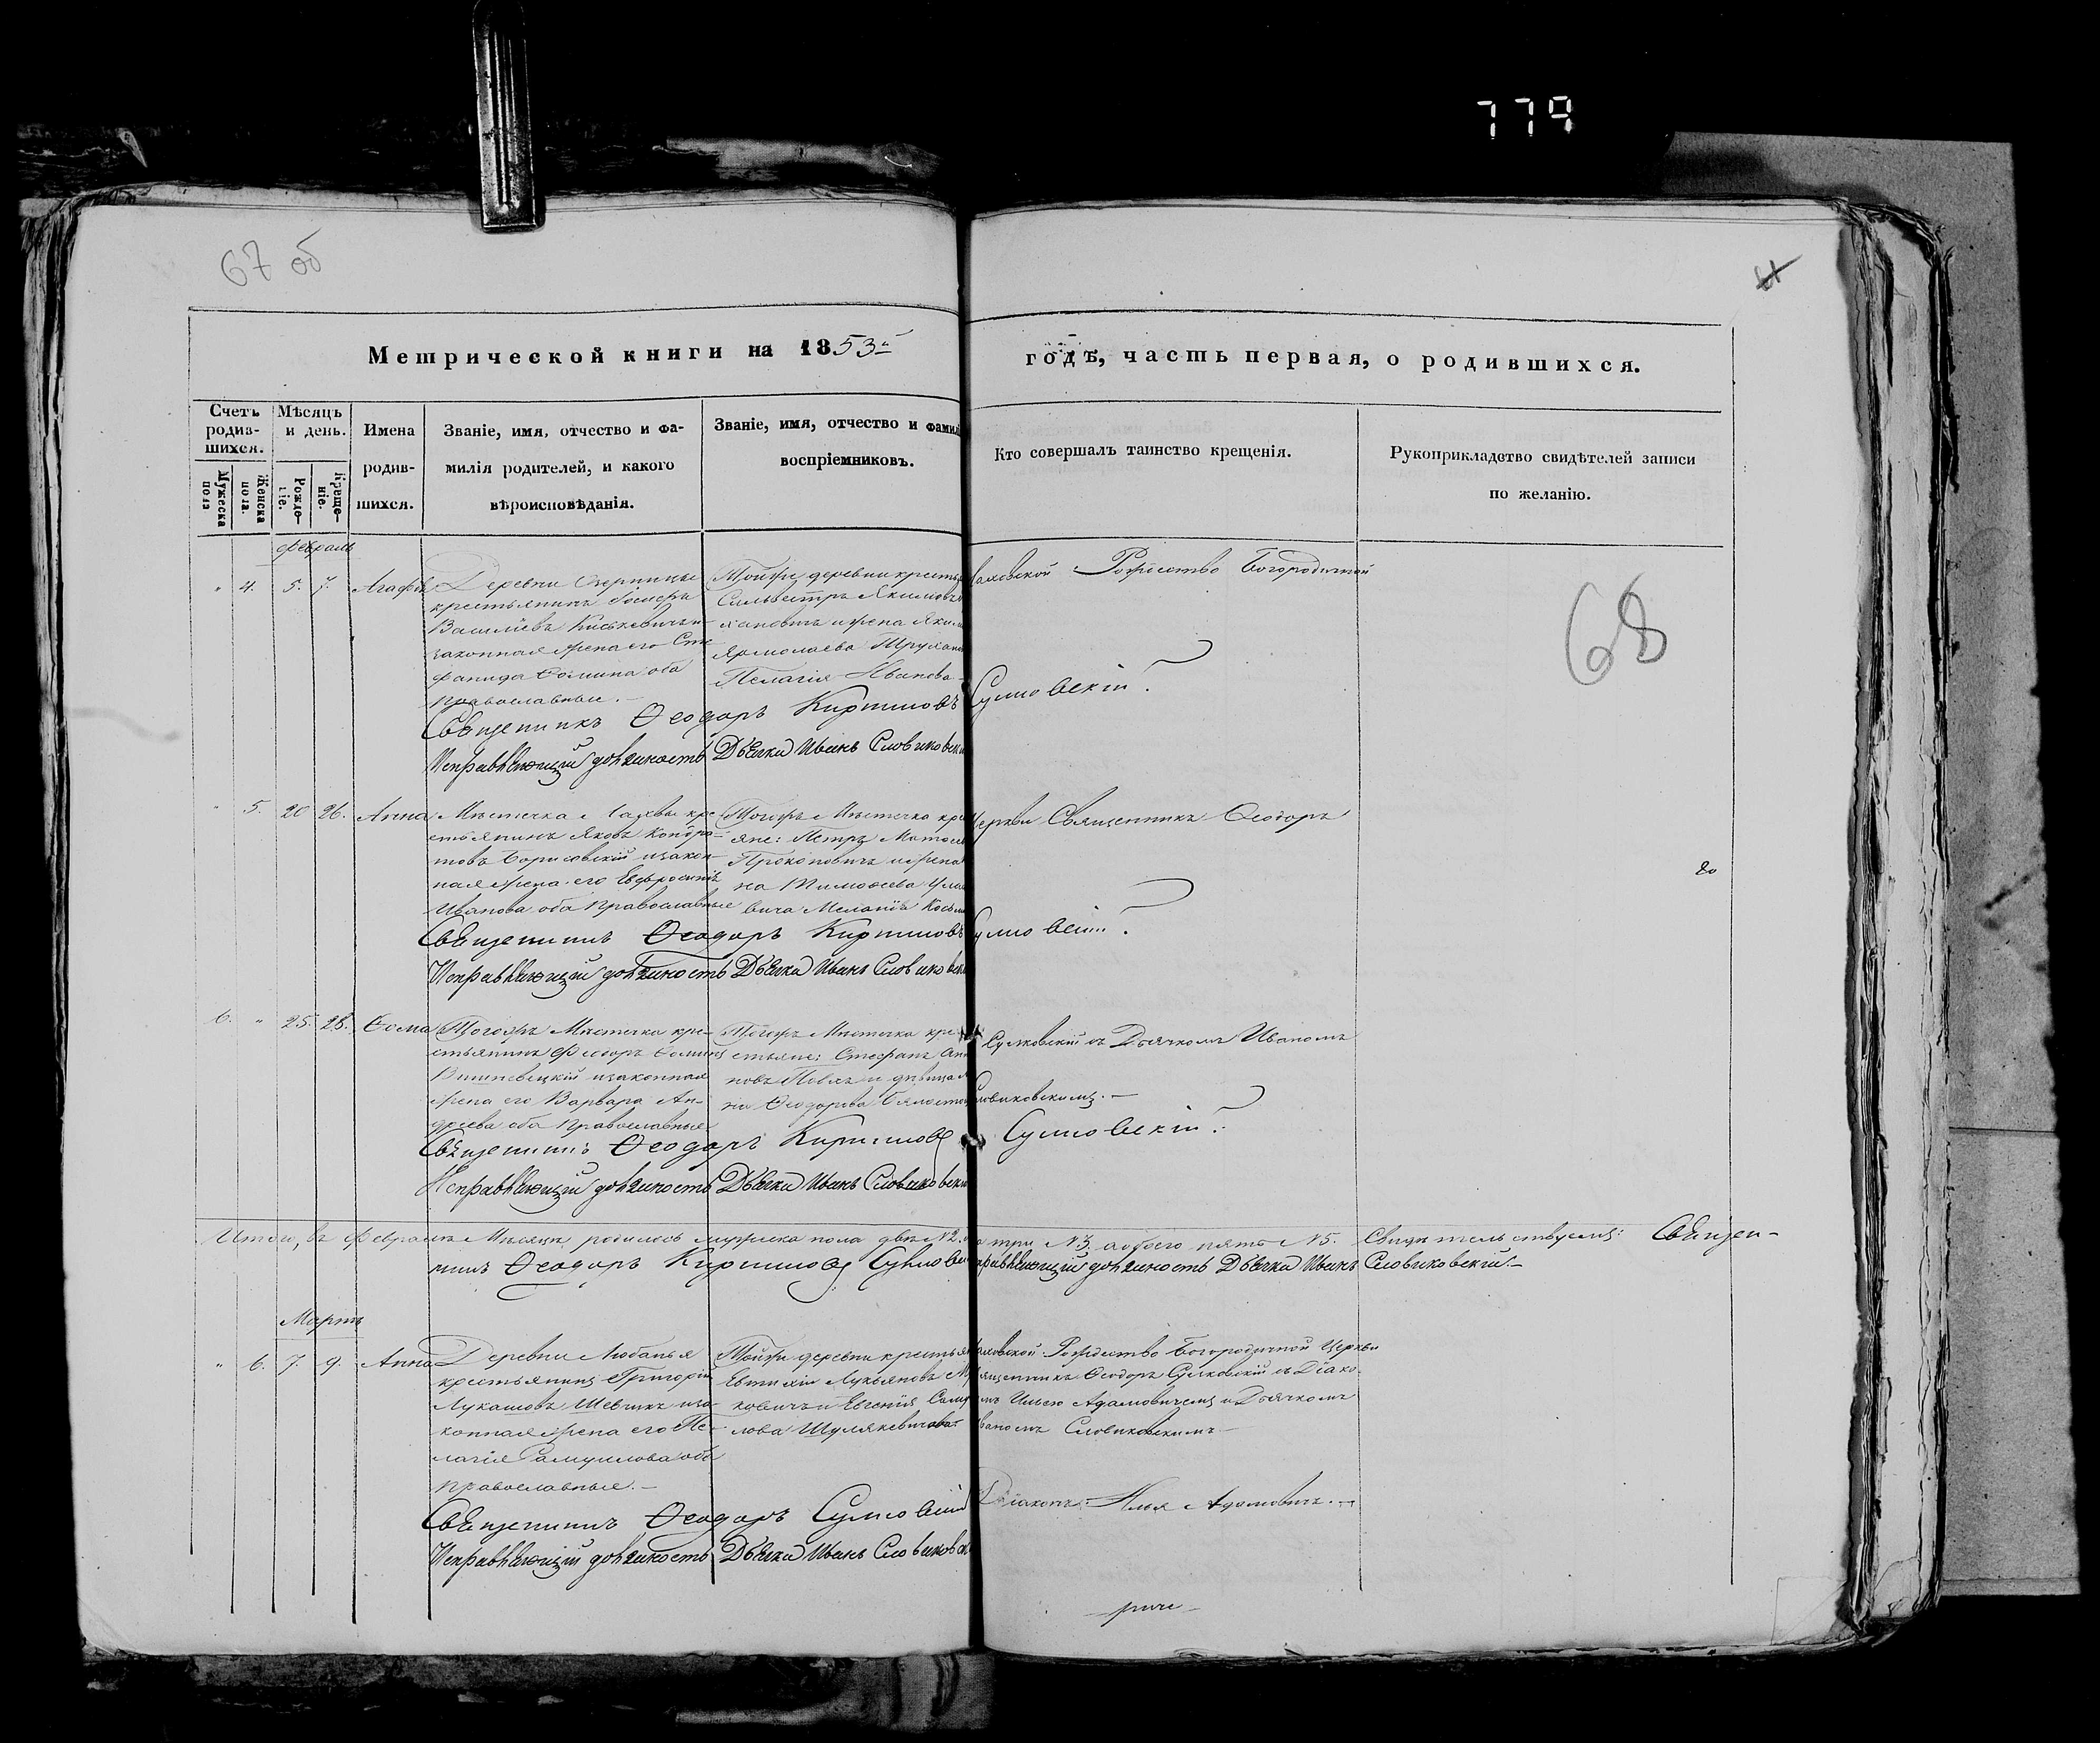 779
67 об
Метрической книги на 1853й годъ, часть первая, о родившихся.
Счетъ родив-шихся.
Мужеска пола
Женска пола.
Мѣсяцъ и день.
Рожде-ніе.
Креще-ніе.
Имена родив-шихся.
Званіе, имя, отчество и фа-
милія родителей, и какого
вѣроисповѣданія.
Званіе, имя, отчество и фамил
воспріемниковъ.
Кто совершалъ таинство крещенія.
Рукоприкладство свидѣтелей записи
по желанію.
68
февраль
" 4. 5. 7. Агафія
Деревни
крестьянинъ
Васильевъ и
законная жена его Сте
фанида Ѳомина оба
православные. —
Тойже деревни крестья
Сильвестръ Якимовъ
жена Яким
Ярмолаева
Пелагія Иванова
Рождество Богородичной
Священникъ Ѳеодоръ Кириловъ Сулковскій
Исправляющій должность Дьячка Иванъ Словиковскі
" 5. 20 26. Анна
Мѣстечка Лахвы кре
стьянинъ Яковъ Кондра-
товъ Борисовскій и закон-
ная жена его Евфросинія
Иванова оба Православные
Тогожъ Мѣстечка кре
яне: Петръ
Прокоповичъ и жена
на Тимоѳеева
вича Меланія
Церкви Священникъ Ѳеодоръ
Священникъ Ѳеодоръ Кириловъ Сулковскій
Исправляющій должность Дьячка Иванъ Словиковскі
6. " 25. 28. Ѳома
Тогожъ Мѣстечка кре-
стьянинъ Ѳеодоръ Ѳоминъ
Вишневецкій и законная
жена его Варвара Ан-
дреева оба Православные
Тогожъ Мѣстечка кре
стьяне: Стефанъ
новъ и дѣвица
на Ѳеодорова
Сулковскій съ Дьячкомъ Иваномъ
Словиковскимъ. —
Священникъ Ѳеодоръ Кириловъ Сулковскій
Исправляющій должность Дьячка Иванъ Словиковскі
Итого, въ Февралѣ Мѣсяцѣ родилось мужеска пола два №2. три №3. а обоего пять №5. Свидѣтельствуемъ: Священ-
никъ Ѳеодоръ Кириловъ Сулковскій Исправляющій должность Дьячка Иванъ Словиковскій. —
Мартъ
" 6. 7. 9. Анна
Деревни Любанья
крестьянинъ Григорій
Лукашовъ Шевчикъ иза
конная жена его Пе-
лагія Самуилова оба
православные. —
Тойже деревни крестья
Евтихій Лукьяновъ
ковичъ и Евгенія
лова Шуляковичова
Рождество Богородичной Церкви
Священникъ Ѳеодоръ Сулковскій съ Діако-
номъ Ильею Адамовичемъ и Дьячкомъ
Иваномъ Словиковскимъ —
Священникъ Ѳеодоръ Сулковскій
Діаконъ Илья Адамовичъ. —
Исправляющій должность Дьячка Иванъ Словиковскі